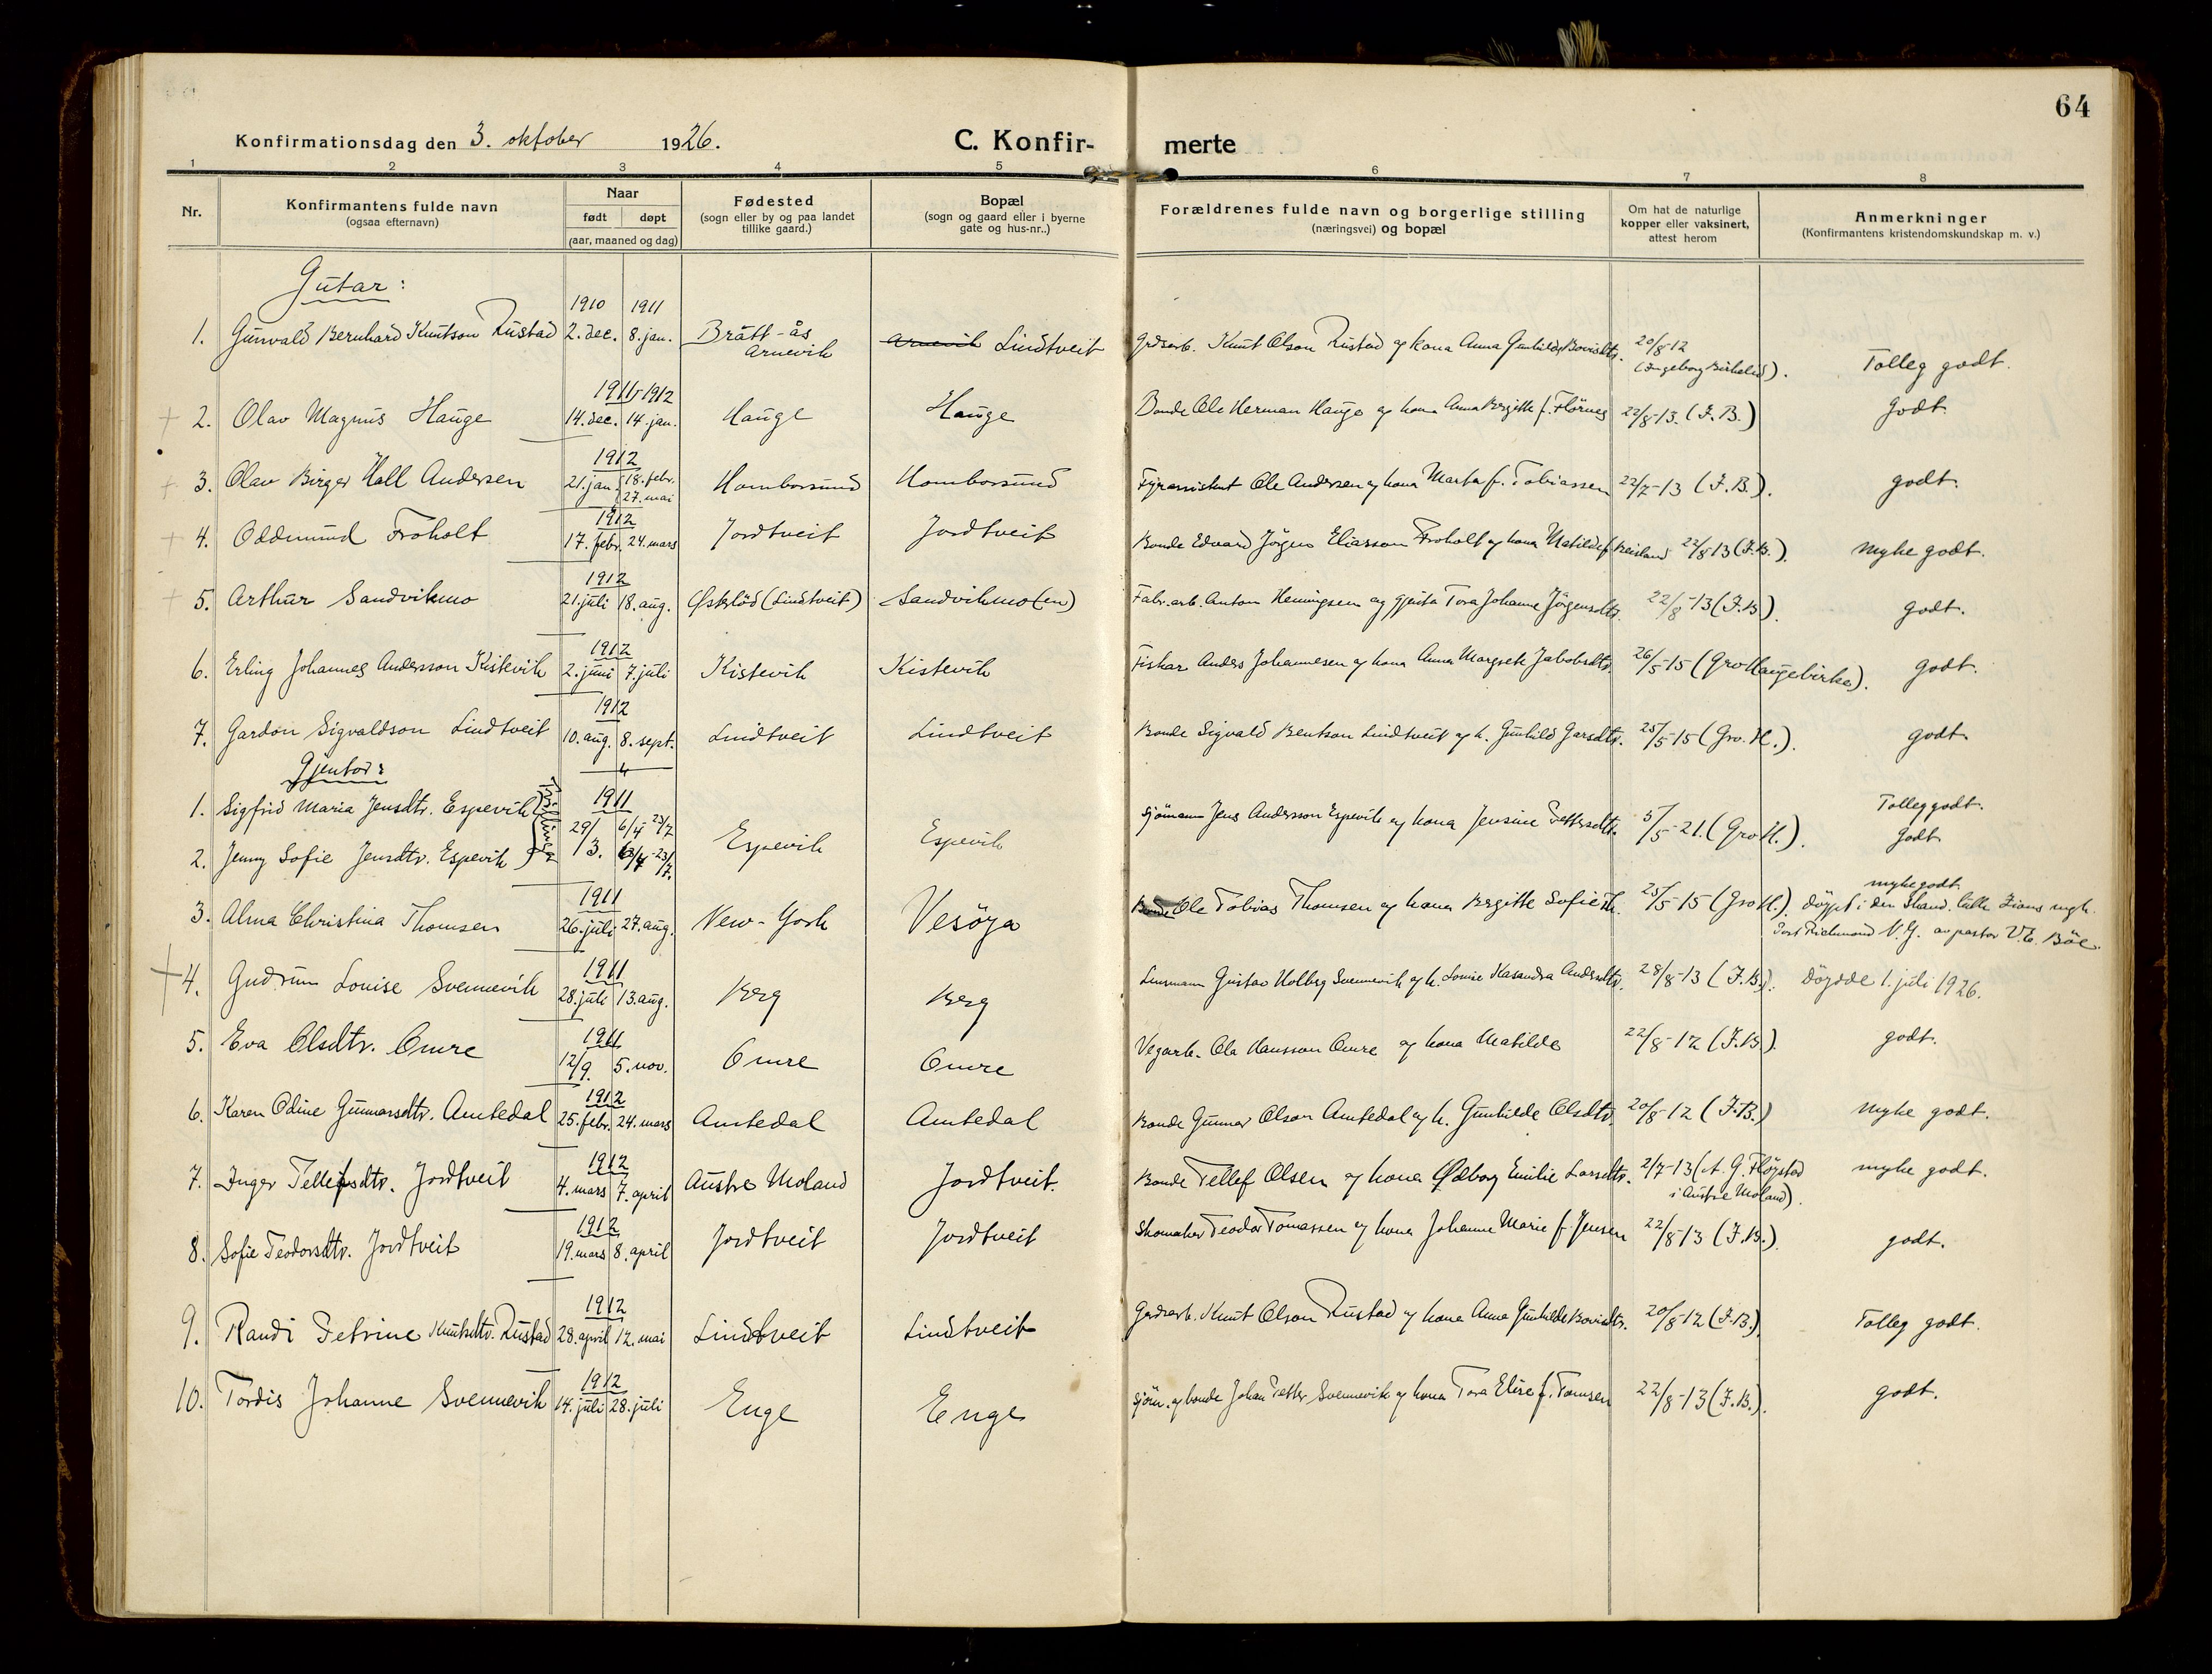 64
Konfirmationsdag den 3. oktober 1926.
C. Konfir-
merte
1 2 3 4 5 6 7 8
Nr.
Konfirmantens fulde navn
(ogsaa efternavn)
Naar
født døpt
(aar, maaned og dag)
Fødested
(sogn eller by og paa landet
tillike gaard.)
Bopæl
(sogn og gaard eller i byerne
gate og hus-nr..)
Forældrenes fulde navn og borgerlige stilling
(næringsvei) og bopæl
Om hat de naturlige
kopper eller vaksinert,
attest herom
Anmerkninger
(Konfirmantens kristendomskundskap m. v.)
Gutar:
1910 1911
1. Gunvald Bernhard Knutson Rustad 2. dec. 8. jan. Brått-ås Arnevik Arnevik Lindtveit Grdsarb. Knut Olson Rustad og kona Anna Gunhilde 20/8-12 (Ingeborg Birkeland). Tolleg godt.
1911-1912
2. Olav Magnus Hauge 14. dec. 14. jan. Hauge Hauge Bonde Ole Herman Hauge og kona Anna Birgitte f. 22/8-13. (I. B.) Godt.
1912
3. Olav Birger Hall Andersen 21. jan. 18. febr. 27. mai Homborsund Homborsund Fyrassistent Ole Andersen og kona Marta f. Tobiassen 22/7-13 (I. B.). godt.
1912
4. Oddmund Froholt 17. febr. 24. mars Jordtveit Jordtveit Bonde Edvard Jørgen Eliasson Froholt og kona Matilde f. Beisland 22/8 13 (I.B.). Myke godt.
1912
5. Arthur Sandvikmo 21. juli 18. aug. (Lindtveit) Sandvikmo(en) Fabr. arb. Anton Henningsen og gjenta Tora Johanne Jörgensdtr. 22/8-13 (I.B). godt.
1912
6. Erling Johannes Andersson Kistevik 2. juni 7. juli Kistevik Kistevik Fiskar Anders Johannesen og kona Anna Margrete Jakobsdtr. 26/5-15 (Gro Haugebirke). godt.
1912
7. Gardon Sigvaldson Lindtveit 10. aug. 8. sept. Lindtveit Lindtveit Bonde Sigvald Bentson Lindtveit og k. Gunhild Garsdtr. 25/5-15 (Gro. H.). godt.
Gjentor:
1911
1. Sigfrid Maria Jensdtr. Espevik 29/3. 6/4 23/7 Espevik Espevik Sjömann Jens Andersson Espevik og kona Jensine Pettersdtr. 5/5-21. (Gro H.). Tolleg godt.
2. Jenny Sofie Jensdtr. Espevik Godt
1911
3. Alma Christina Thomsen 26. juli 27. aug. New-York Vesöya Bonde Ole Tobias Thomsen og kona Birgitte Sofie 25/5-15 (Gro H.). myke godt. döypt i den Skand. luth. Zions mgh. Port Richmond N.Y. av pastor V.E. Böe.
1911
4. Gudrun Louise Svennevik 28. juli 13. aug. Berg Berg Lensmann Gustav Holberg Svennevik og k. Louise Kasandra Andersdtr. 28/8-13 (I.B.). Döydde 1. juli 1926.
1911
5. Eva Olsdtr. Omre 12/9. 5. nov. Omre Omre Vegarb. Ola Hansson Omre og kona Matilde 22/8-12 (I.B.). godt.
1912
6. Karen Odine Gunnarsdtr. Amtedal 25. febr. 24. mars Amtedal Amtedal Bonde Gunnar Olson Amtedal og k. Gunhilde Olsdtr. 20/8-12 (I.B.) Myke godt.
1912
7. Inger Tellefsdtr. Jordtveit 4. mars 7. april Austre Moland Jordtveit. Bonde Tellef Olsen og kona Ødborg Emilie Larsdtr. 2/7-13 (A. G. Fløystad i Austre Moland). myke godt.
1912
8. Sofie Teodorsdtr. Jordtveit 19. mars 8. april Jordtveit Jordtveit Skomaker Teodor Tomassen og kona Johanne Marie f. Jensen 22/8-13 (I.B.). godt.
1912
9. Randi Petrine Knutsdtr. Rustad 28. april 12. mai Lindtveit Lindtveit Grdsarb. Knut Olson Rustad og kona Anna Gunhilde 20/8-12 (I.B.). Tolleg godt.
1912
10. Tordis Johanne Svennevik 14. juli 28. juli Enge Enge Sjöm. og bonde Johan Petter Svennevik og kona Tora Elise f. Tomsen 22/8-13 (I.B.). godt.